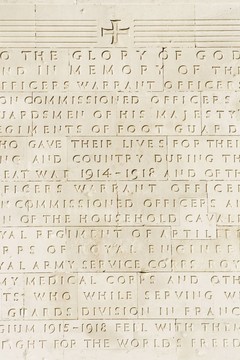 O THE GLORY OF GOD
ND IN MEMORY OF THE
FFICERS WARRANT OFFICERS
ON COMMISSIONED OFFICERS
UARDSMEN OF HIS MAJESTY
EGIMENTS OF FOOT GUARD
HO GAVE THEIR LIVES FOR THEI
NG AND COUNTRY DURING TH
EAT WAR 1914-1918 AND OF TH
FICERS WARRANT OFFICER
N COMMISSIONED OFFICERS AN
N OF THE HOUSEHOLD CAVAL
YAL REGIMENT OF ARTILL
RPS OF ROYAL ENGINE
YAL ARMY SERVICE CORPS ROY
MY MEDICAL CORPS AND OTH
TS WHO WHILE SERVING W
GUARDS DIVISION IN FRANC
GIUM 1915-1918 FELL WITH THEM
IGHT FOR THE WORLD'S FREED